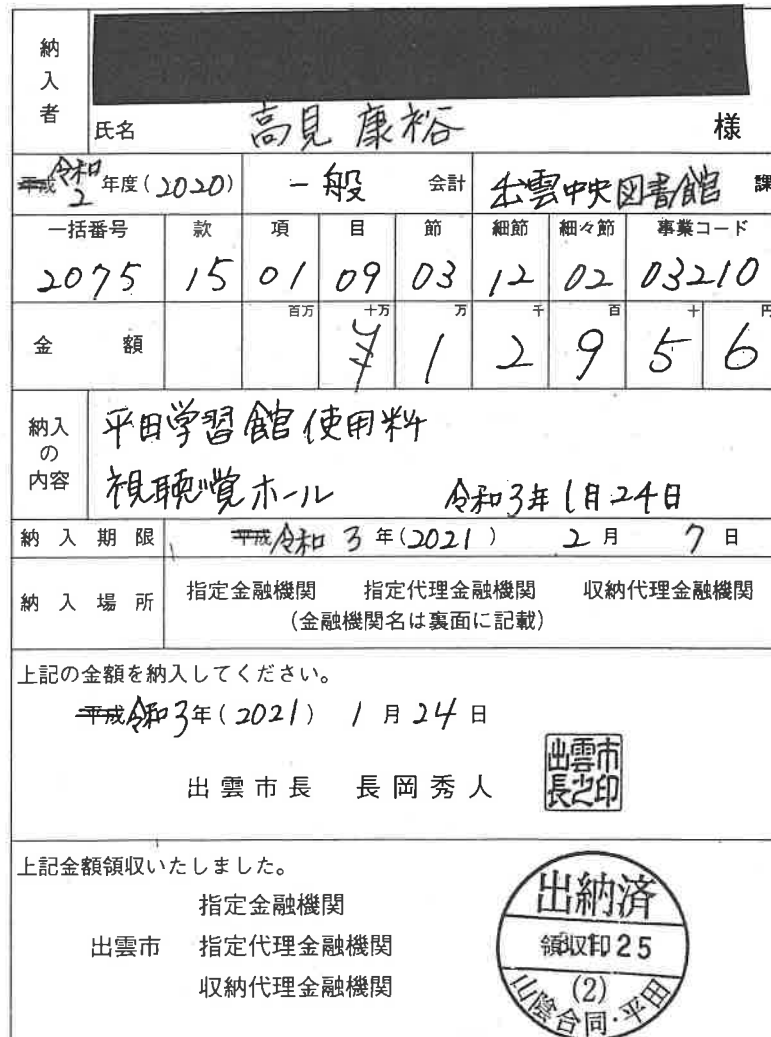 納入者
氏名 高見 康裕 様
平成 令和 2 年度(2020) 一般 会計 出雲中央図書館 課
一括番号 款 項 目 節 細節 細々節 事業コード
2075 15 01 09 03 12 02 03210
百万 十万 万 千 百 十 円
金額 ¥ 1 2 9 5 6
納入の内容
平田学習館使用料
視聴覚ホール 令和3年1月24日
納入期限 平成 令和 3 年(2021) 2 月 7 日
納入場所 指定金融機関 指定代理金融機関 収納代理金融機関
(金融機関名は裏面に記載)
上記の金額を納入してください。
平成 令和3年(2021) 1 月 24 日
出雲市長 長岡秀人
出雲市長之印
上記金額領収いたしました。
指定金融機関
出雲市 指定代理金融機関
収納代理金融機関
出納済
領収印 25
(2)
山陰合同・平田